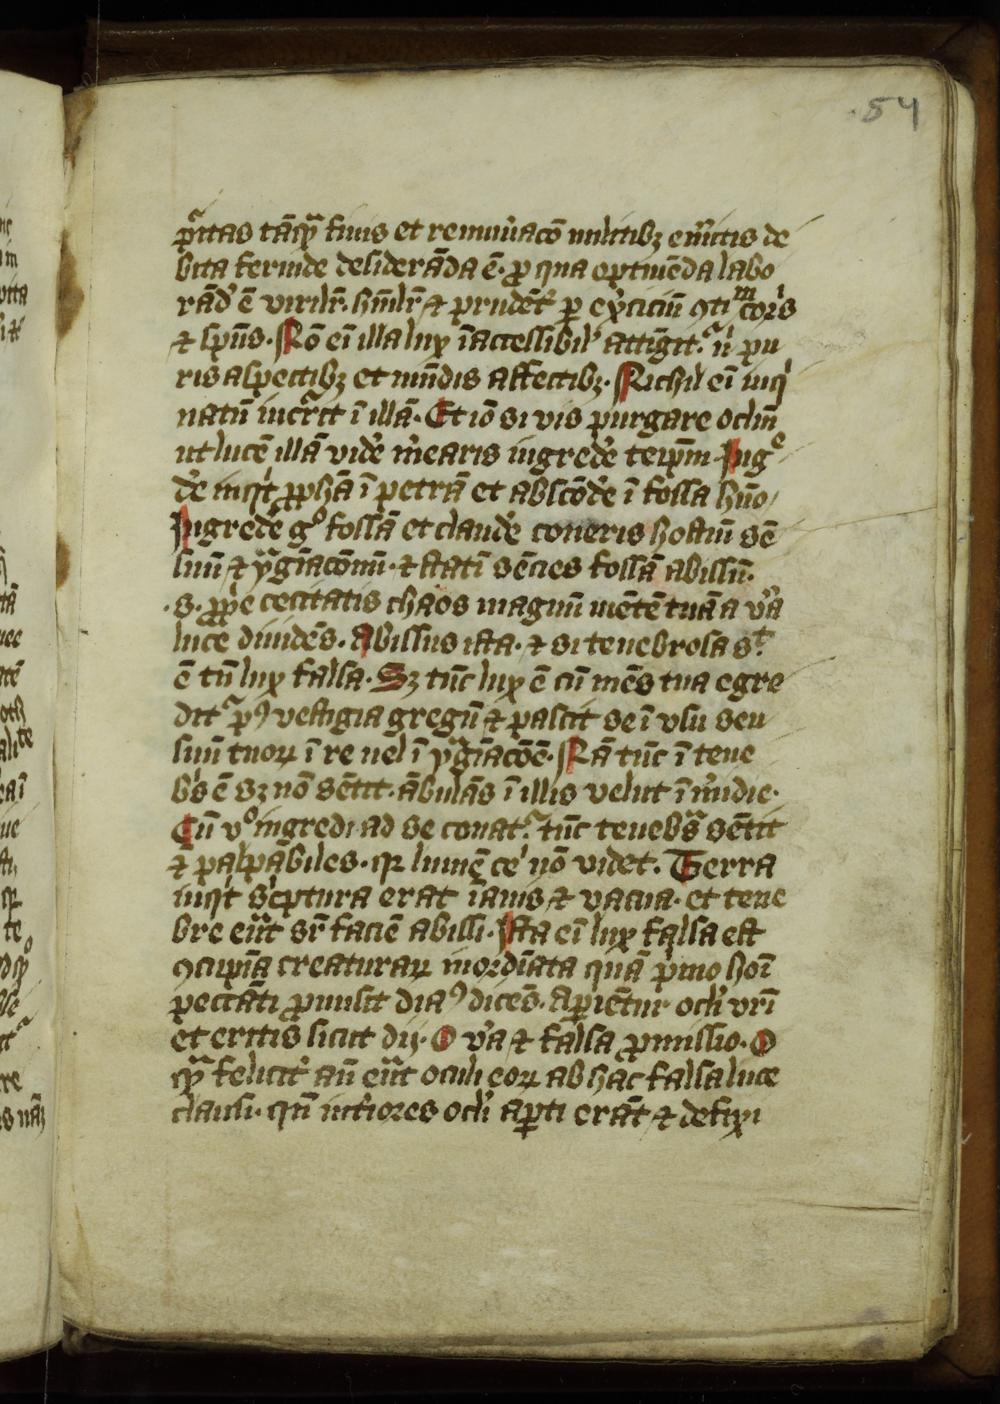 54
p̄itas tāq̄ finis et remun̄acō militibꝫ em̄itis de
bita feruide desiderāda ē. ꝓ qua optinēda labo
rād' ē virilr̄. hūilr̄ ⁊ prudēt' ꝑ ex̄ciciū ꝯtiᵐ cor̄s
⁊ sp̄ūs. Nō eī illa lux īaccessibil' attīgit᷑ n̄ pu
ris aspectibꝫ et mūdis affectibꝫ. Nichil eī inq'
natū incr̄rit ī illā. Et iō si vis purgare oclm̄
ut lucē illā vid'e m̄earis ingred'e teip̄m. Ingᵒ
d'e inq't ꝓph̄a ī petrā et abscōd'e ī fossa hūo
Ingred'e gᵒ fossā et claud'e coneris hostiū sē
suū ⁊ ymḡiacōnū. ⁊ statī sēcies fossā abissū.
.s. ꝓp'e cecitatis chaos magnū mētē tuā a v̄a
luce diuidēs. Abissus ista. ⁊ si tenebrosa sᵗ.
ē tn̄ lux falsa. Sꝫ tūc lux ē cū mēs tua egre
dit᷑ pꝰ vestigia gregū ⁊ pascit se ī vsu sen
suū tuoꝝ ī re uel ī ymḡiacōē. Nā tūc ī tene
b's ē sꝫ nō sētit. ābulās ī illis velut ī m'idie.
Cū vᵒ ingredi ad se conat᷑. tūc teneb's sētit
⁊ palpābiles. qꝛ lumē ce' nō videt. Terra
inq't sc'ptura erat īanis ⁊ vacua. et tene
bre er̄āt sr̄ faciē abissi. Ista eī lux falsa est
ꝯcupīa creaturaꝝ inordīata quā p'mo hoī
peccāti ꝓmisit diaꝰ dicēs. aꝑiētur oc'li vr̄i
et eritis sicut dij. O v'a ⁊ falsa ꝓmissio. O
q̄ felicit' an̄ er̄āt oculi eoꝝ ab hac falsa luce
clausi. qn̄ int'iores oc'li aꝑti erāt ⁊ defixi